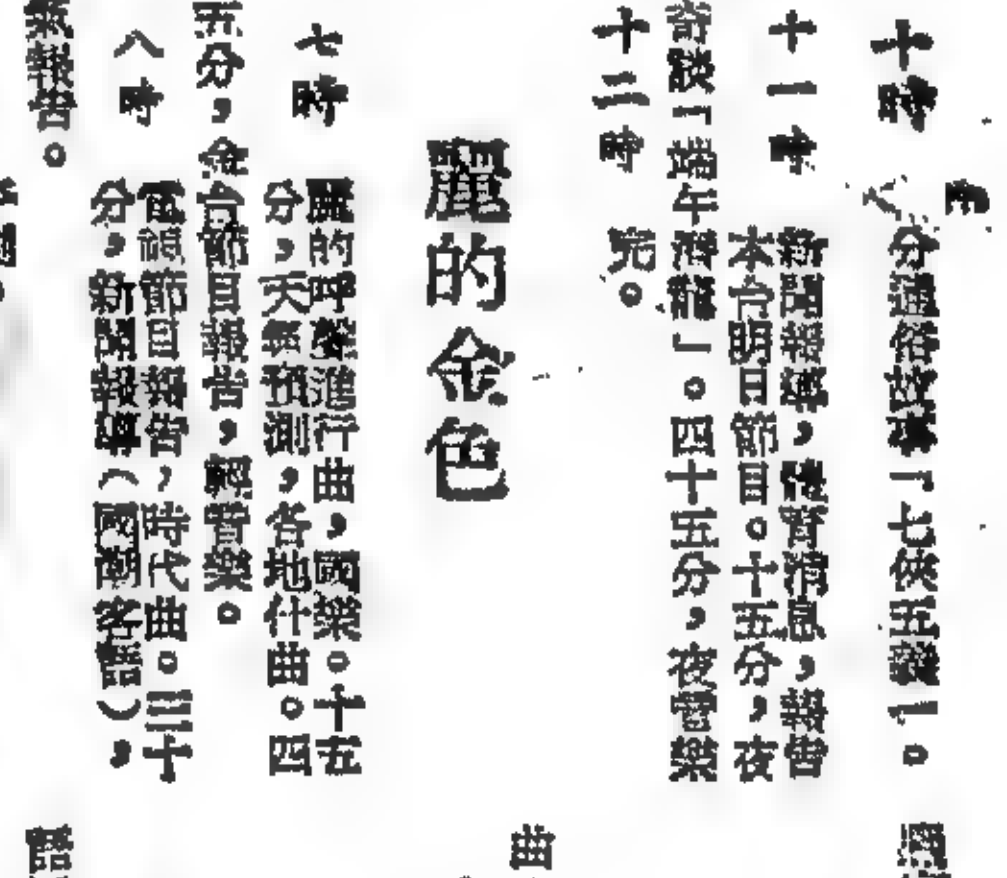 十時
分通俗故事「七俠五義」。
十一時
新聞報導，體育消息，報告
本台明日節目。十五分，夜
奇談「端午濟龍」。四十五分，夜音樂
十二時
完。
麗的金色
七時
麗的呼聲進行曲，國樂。十五
分，天氣預測，各地什曲。四
五分，金台節目報告，輕音樂。
八時
電視節目報告，時代曲。三十
分，新聞報導（國潮客語），
氣報告。
曲
語